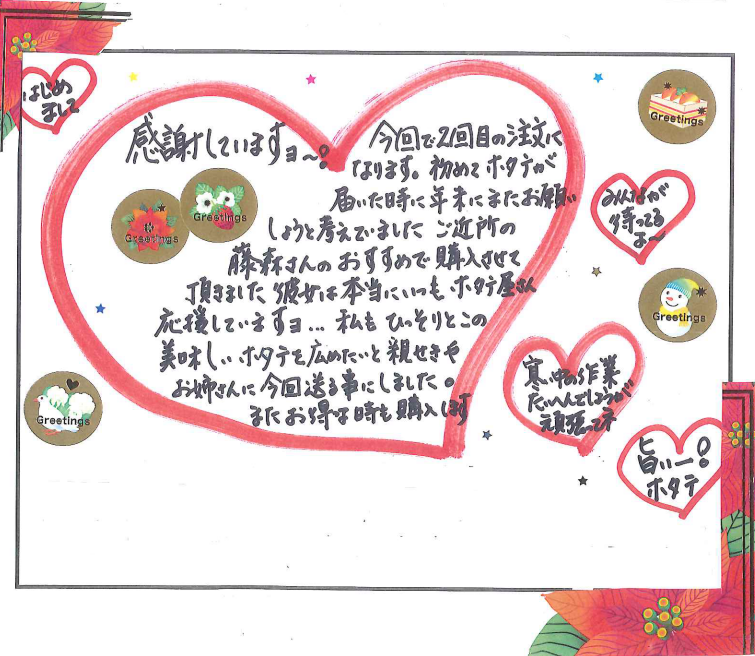 はじめ
まして
感謝していますヨ〜!
今回で2回目の注文に
なります。初めてホタテが
届いた時に年末にまたお願い
しようと考えていました ご近所の
藤森さんのおすすめで購入させて
頂きました 彼女は本当にいつもホタテ屋さん
応援していますヨ... 私もひっそりとこの
美味しいホタテを広めたいと親せきや
お姉さんに今回送る事にしました。
またお得な時も購入します
Greetings
Greetings
Greetings
みんなが
待ってる
よ〜
Greetings
寒い中の作業
たいへんでしょうが
頑張ってネ
Greetings
旨いー!
ホタテ